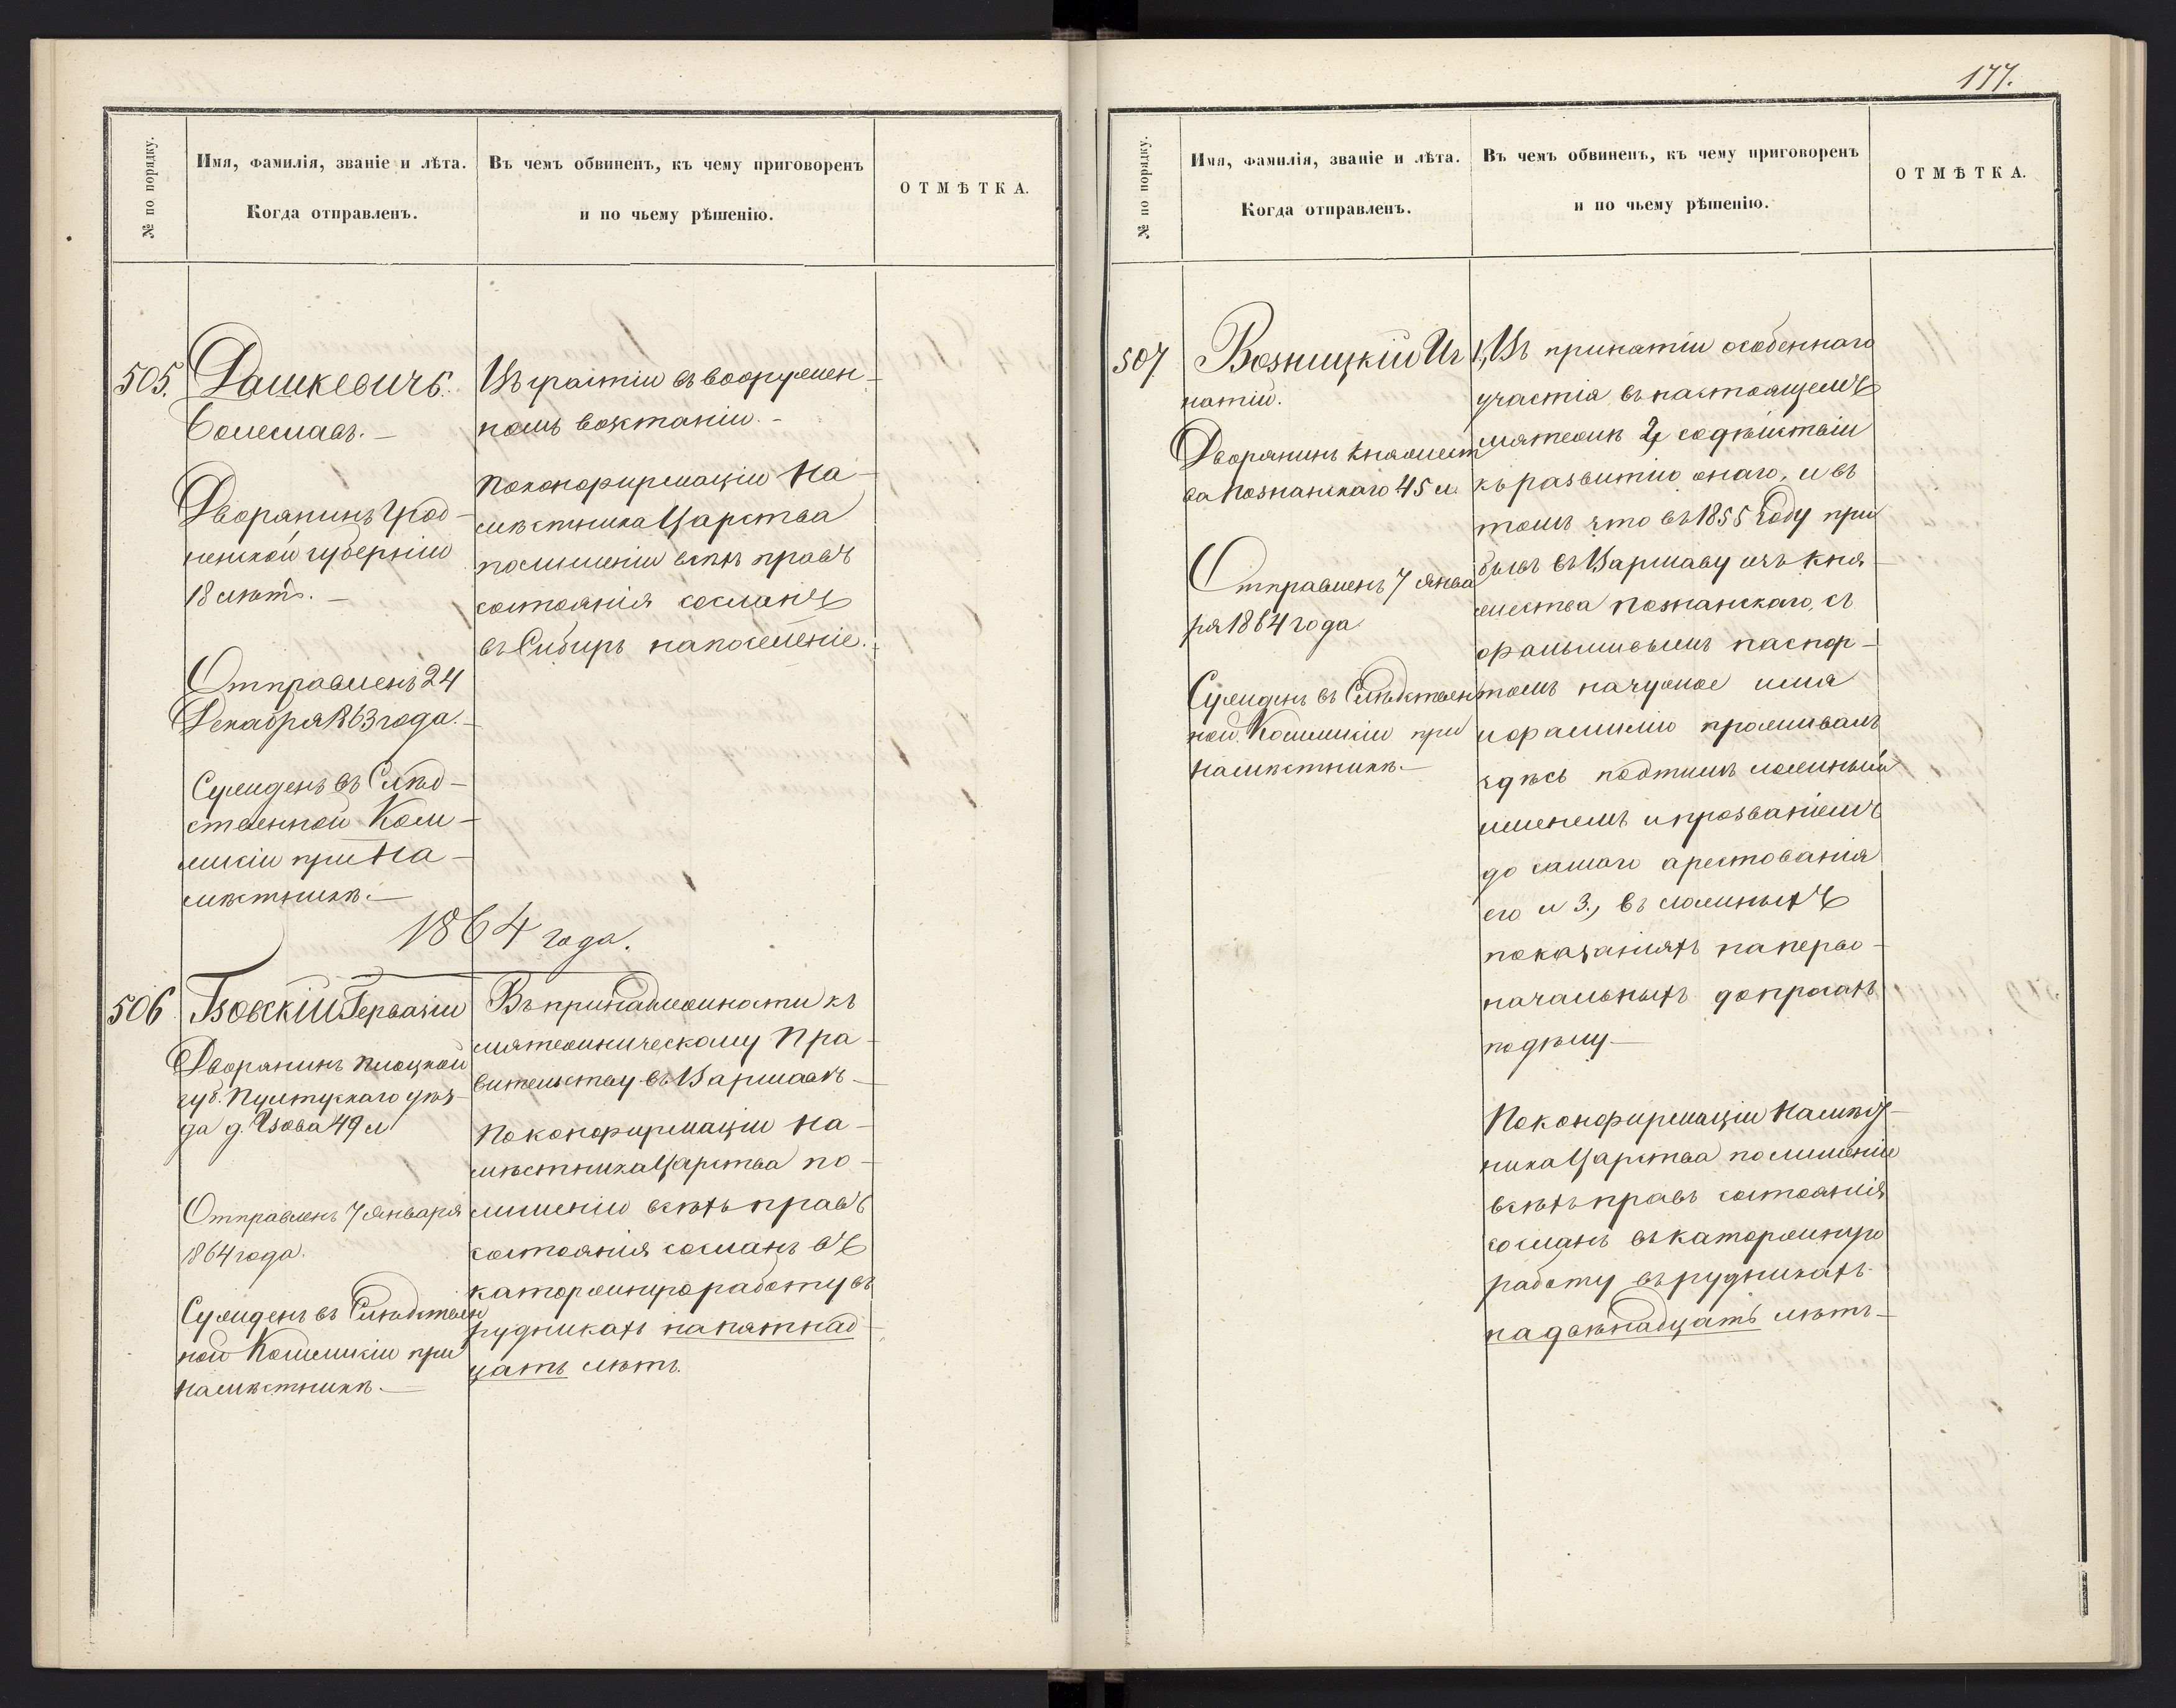 177.
№ по порядку.
Имя, фамилія, званіе и лѣта.
Когда отправленъ.
Въ чемъ обвиненъ, къ чему приговоренъ
и по чьему рѣшенію.
ОТМѢТКА.
505.
Дашкевичъ.
Болеславъ. —
Дворянинъ Грод-
ненской губерніи
18 лѣтъ. —
Отправленъ 24
Декабря 1863 года. —
Сужденъ въ Слѣд-
ственной Ком-
мисіи при На-
мѣстникѣ. —
Въ участіи въ вооружен-
номъ возстаніи. -
По конфирмаціи На-
мѣстника Царства
по лишеніи всѣхъ правъ
состоянія сосланъ
въ Сибирь на поселеніе. -
1864 года.
506
Гзовскій Гервазій
Дворянинъ Плоцкой
губ. Пултускаго уѣз-
да д. Гзова 49 л
Отправленъ 7 Января
1864 года.
Сужденъ въ Слѣдствен
ной Коммисіи при
Намѣстникѣ. —
Въ принадлежности къ
мятежническому Пра-
вительству въ Варшавѣ —
По конфирмаціи На-
мѣстника Царства по-
лишеніи всѣхъ правъ
состоянія сосланъ въ
каторжную работу въ
рудникахъ на пятнад-
цать лѣтъ.
№ по порядку.
Имя, фамилія, званіе и лѣта.
Когда отправленъ.
Въ чемъ обвиненъ, къ чему приговоренъ
и по чьему рѣшенію.
ОТМѢТКА.
507
Возницкій Иг
натій.
Дворянинъ Княжест
ва Познанскаго 45 л.
Отправленъ 7 Янва
ря 1864 года
Сужденъ въ Слѣдствен
ной Коммисіи при
Намѣстникѣ. —
1, Въ принятіи особеннаго
участія въ настоящемъ
мятежѣ 2, содѣйствіи
къ развитію онаго, и въ
томъ что въ 1855 году при
былъ въ Варшаву изъ Кня-
жества Познанскаго, съ
фальшивымъ паспор-
томъ на чужое имя
и фамилію проживалъ
здѣсь подтимъ ложнымъ
именемъ и прозваніемъ
до самаго арестованія
его и 3., въ ложныхъ
показаніяхъ на перво-
начальныхъ допросахъ
по дѣлу —
По конфирмаціи Намѣст-
ника Царства по лишеніи
всѣхъ правъ состоянія
сосланъ въ каторжную
работу въ рудникахъ
на двѣнадцать лѣтъ —